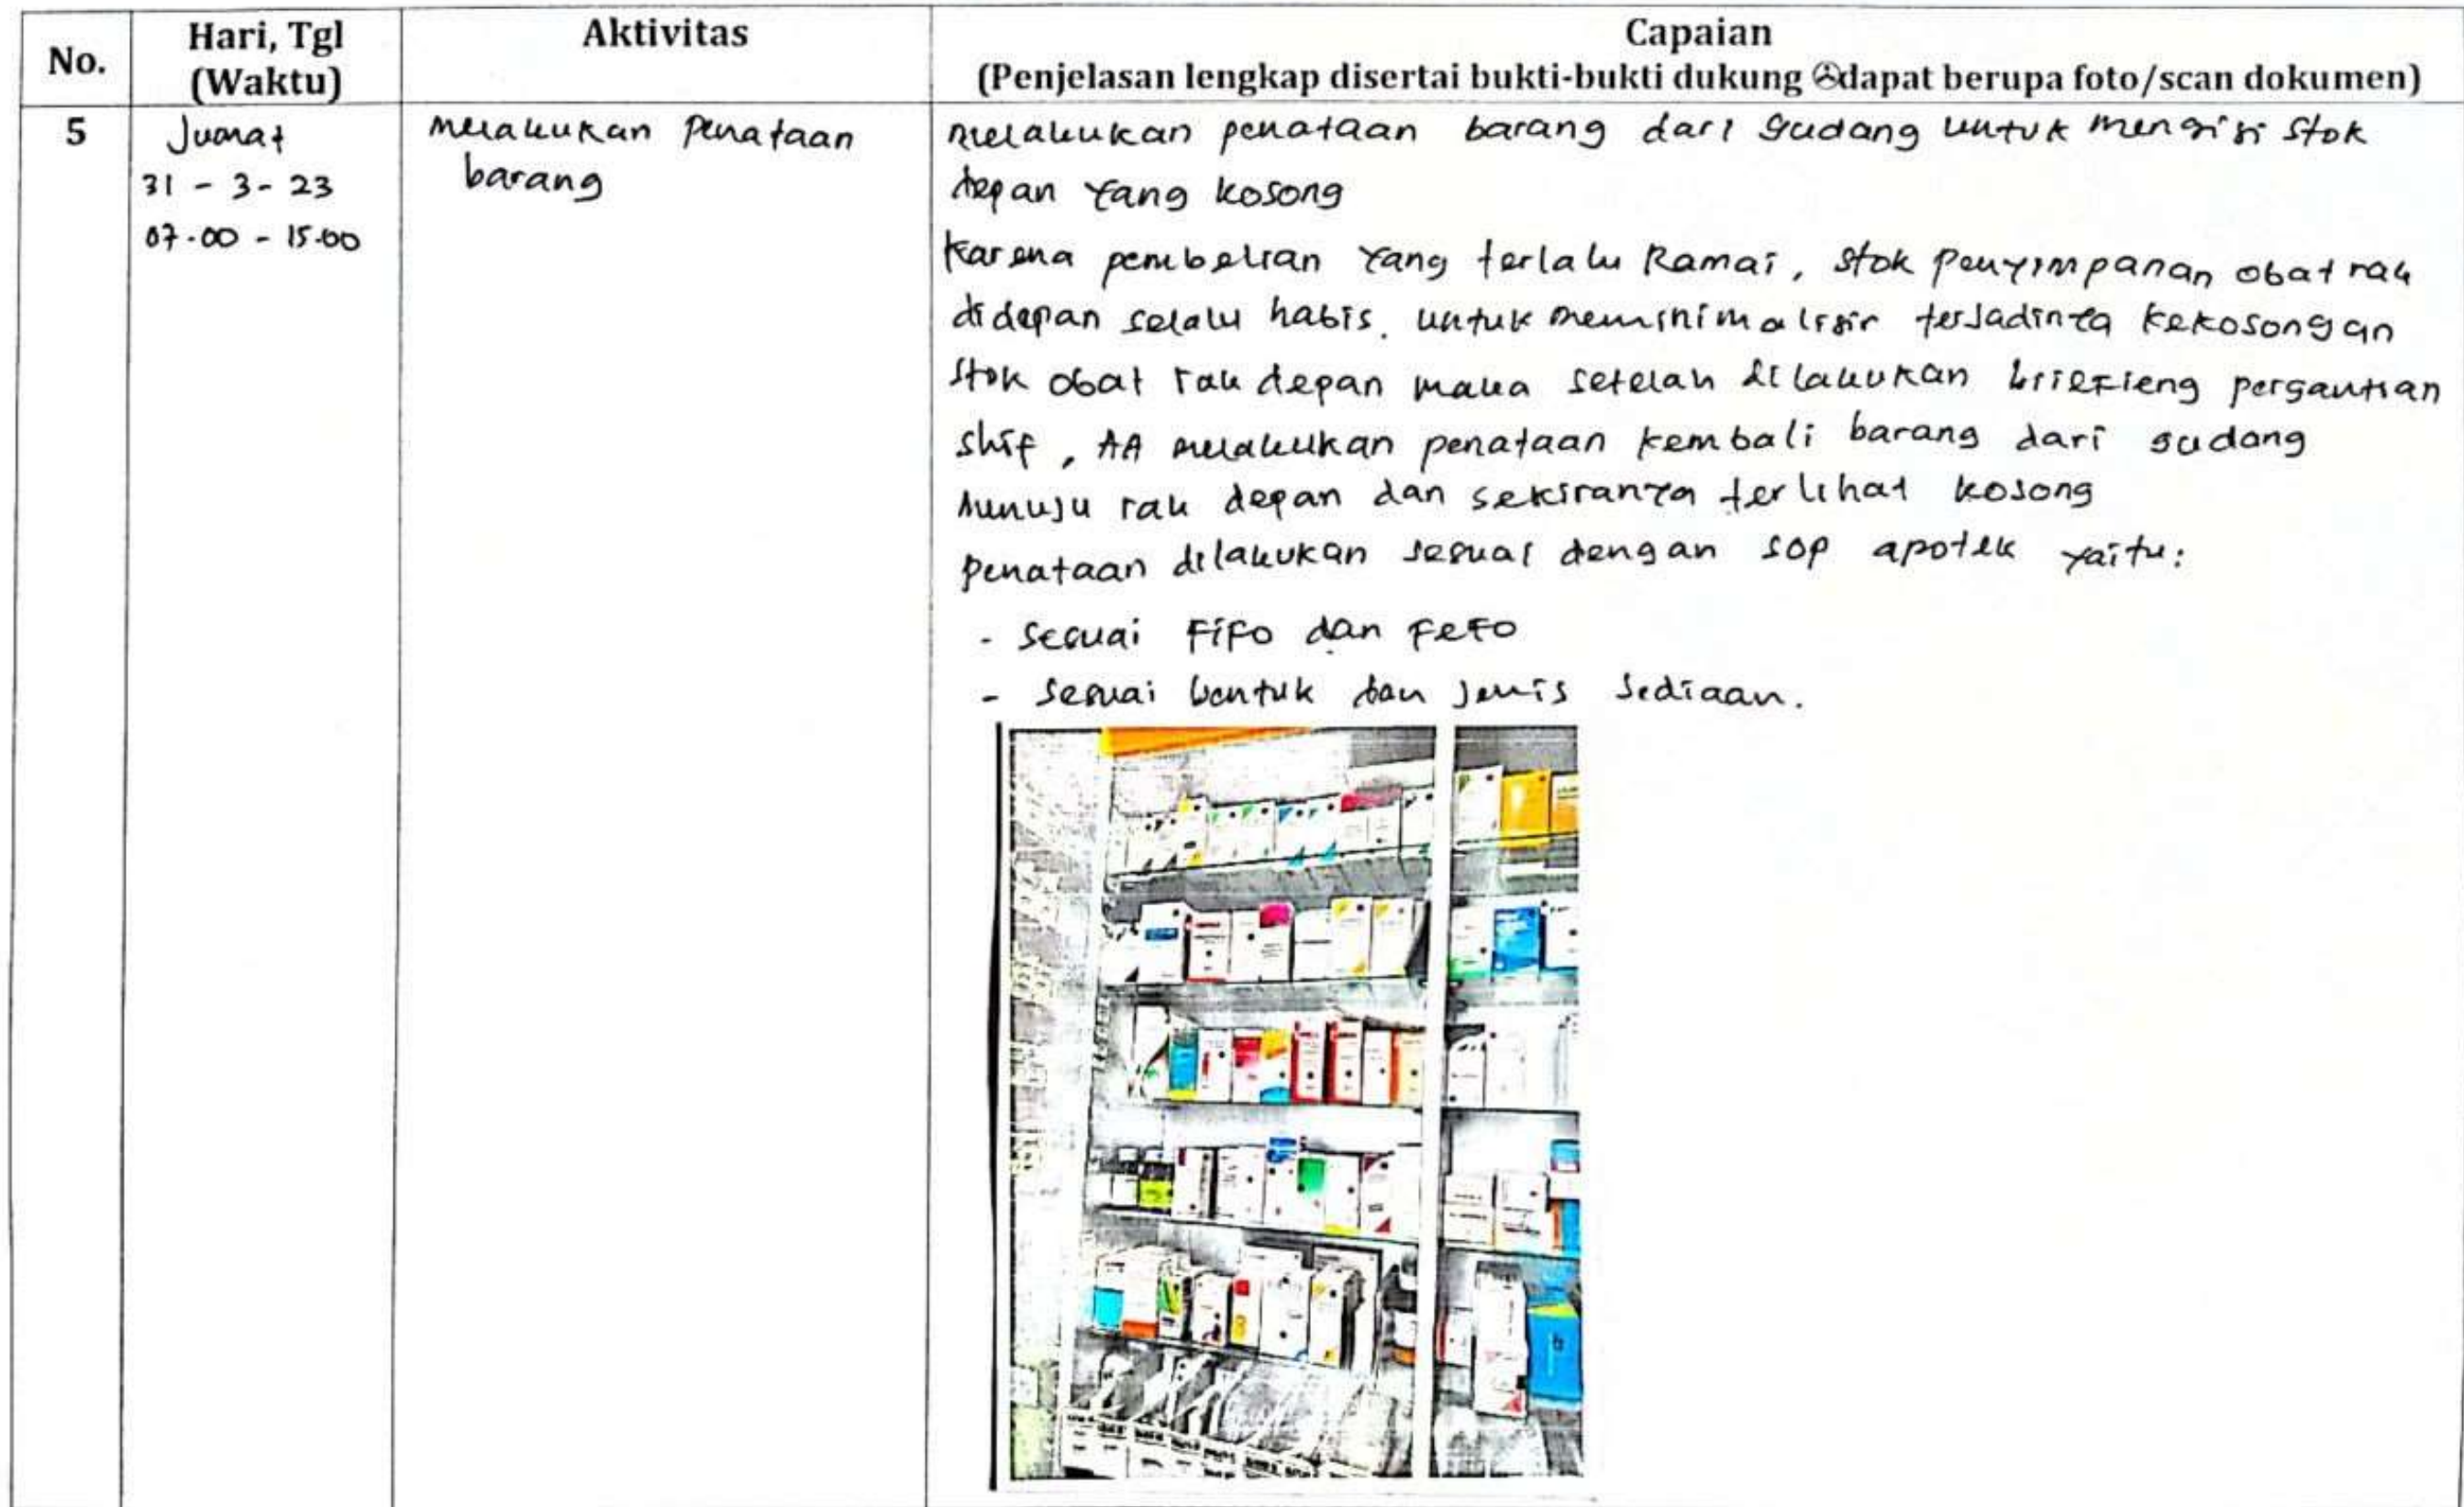 No.
Hari, Tgl
(Waktu)
Aktivitas
Capaian
(Penjelasan lengkap disertai bukti-bukti dukung dapat berupa foto/scan dokumen)
5
Jumat
31 - 3 - 23
07.00 - 15.00
melakukan penataan
barang
melakukan penataan barang dari gudang untuk mengisi stok
depan yang kosong
Karena pembelian yang terlalu Ramai, stok penyimpanan obat rak
didepan selalu habis. untuk meminimalisir terjadinya kekosongan
stok obat rak depan maka setelah dilakukan briefieng pergantian
shif, AA melakukan penataan kembali barang dari gudang
menuju rak depan dan sekiranya terlihat kosong
penataan dilakukan sesuai dengan SOP apotek yaitu:
- sesuai FIFO dan FEFO
- sesuai bentuk dan jenis sediaan.